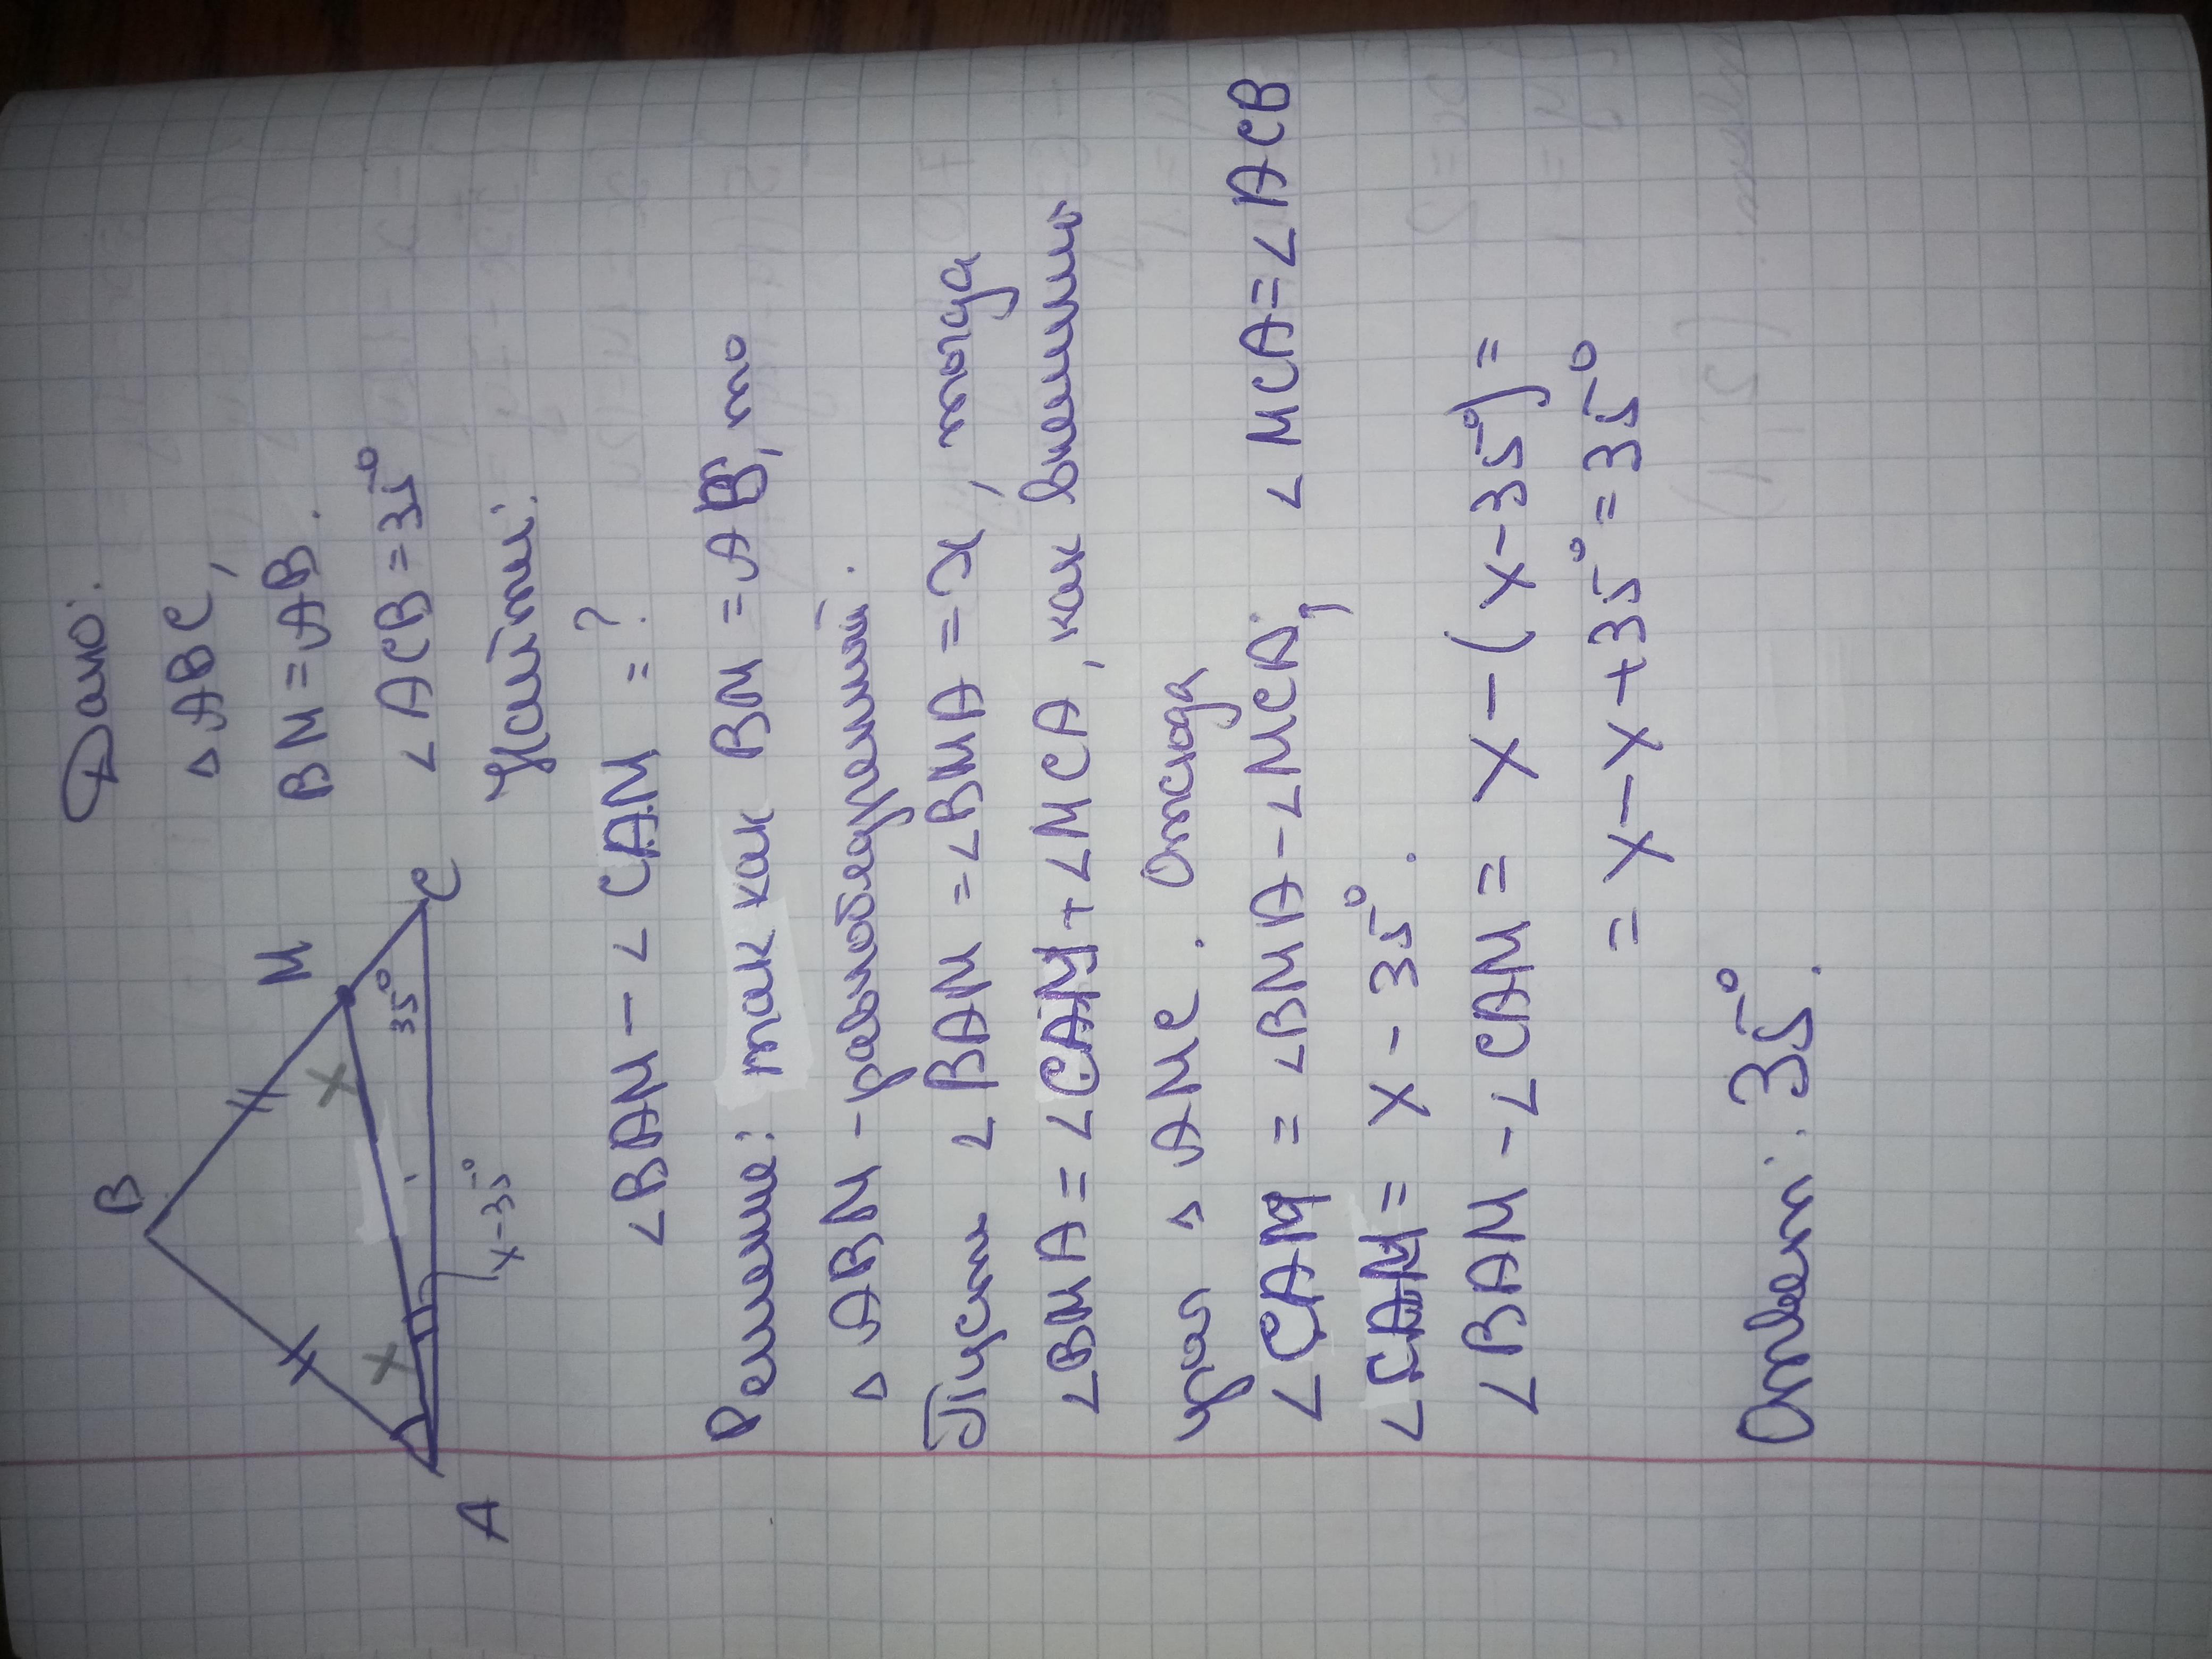 B
M
X
X
35°
A
C
x-35°
Дано:
△ABC,
BM=AB.
∠ACB=35°
Найти:
∠BAM-∠CAM=?
Решение: так как BM=AB, то
△ABM-равнобедренный.
Пусть ∠BAM=∠BMA=x, тогда
∠BMA=∠CAM+∠MCA, как внешний
угол △AMC. Отсюда
∠CAM=∠BMA-∠MCA; ∠MCA=∠ACB
∠CAM=x-35°.
∠BAM-∠CAM=x-(x-35°)=
=x-x+35°=35°
Ответ: 35°.